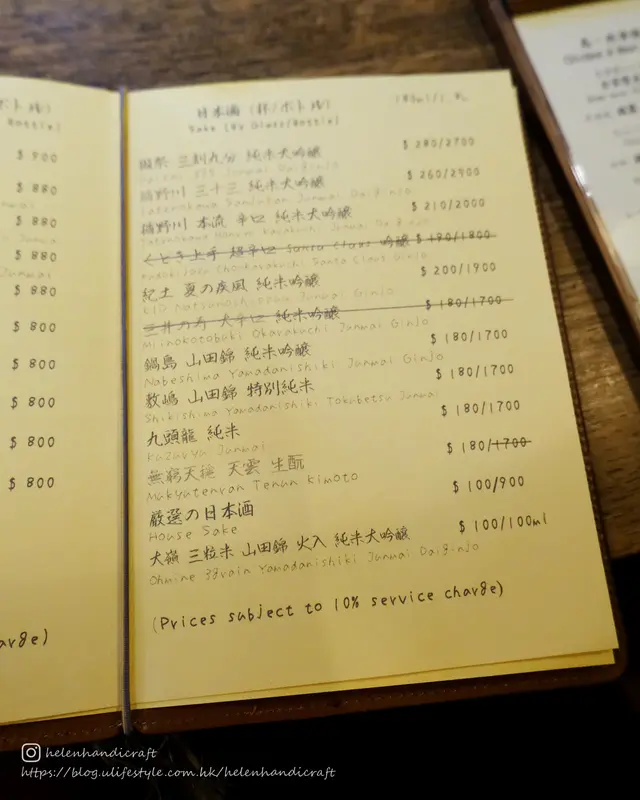 ボトル)
Bottle)
$ 900
$ 880
$ 880
$ 880
$ 880
$ 800
$ 800
$ 800
$ 800
$ 800
arge)
日本酒 (杯/ボトル)
Sake (By Glass/Bottle)
180ml/1.8L
獺祭 三割九分 純米大吟醸 $ 280/2700
Junmai Daiginjo
楯野川 三十三 純米大吟醸 $ 260/2400
Tatenokawa Sanjusan Junmai Daiginjo
楯野川 本流 辛口 純米大吟醸 $ 210/2000
Tatenokawa Honryu Karakuchi Junmai Daiginjo
くどき上手 超辛口 Santa Claus 吟醸 $ 190/1800
Kudoki Jozu Cho-Karakuchi Santa Claus Ginjo
紀土 夏の疾風 純米吟醸 $ 200/1900
KID Natsunoshippuu Junmai Ginjo
三井の寿 大辛口 純米吟醸 $ 180/1700
Miinokotobuki Okarakuchi Junmai Ginjo
鍋島 山田錦 純米吟醸 $ 180/1700
Nabeshima Yamadanishiki Junmai Ginjo
敷嶋 山田錦 特別純米 $ 180/1700
Shikishima Yamadanishiki Tokubetsu Junmai
九頭龍 純米 $ 180/1700
Kuzuryu Junmai
無窮天穏 天雲 生酛 $ 180/1700
Mukyutenran Tenun Kimoto
厳選の日本酒 $ 100/900
House Sake
大嶺 三粒米 山田錦 火入 純米大吟醸 $ 100/100ml
Ohmine 3grain Yamadanishiki Junmai Daiginjo
(Prices subject to 10% service charge)
helenhandicraft
https://blog.ulifestyle.com.hk/helenhandicraft